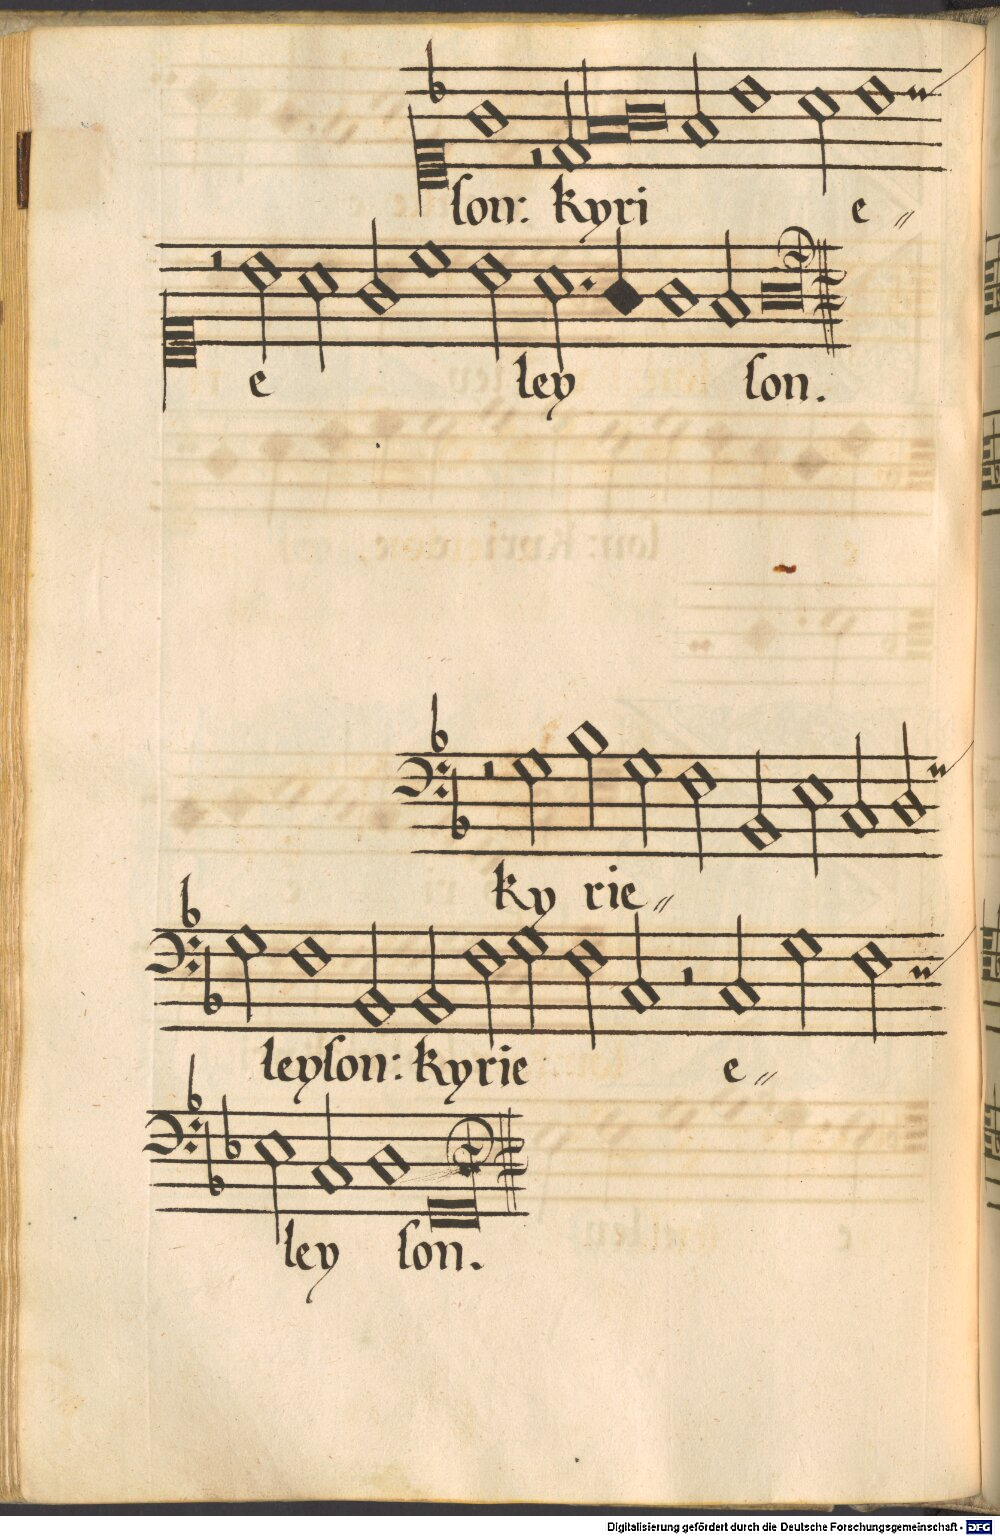 son: kyri e
e ley son.
ky rie
leyson: kyrie e
ley son.
Digitalisierung gefördert durch die Deutsche Forschungsgemeinschaft - DFG